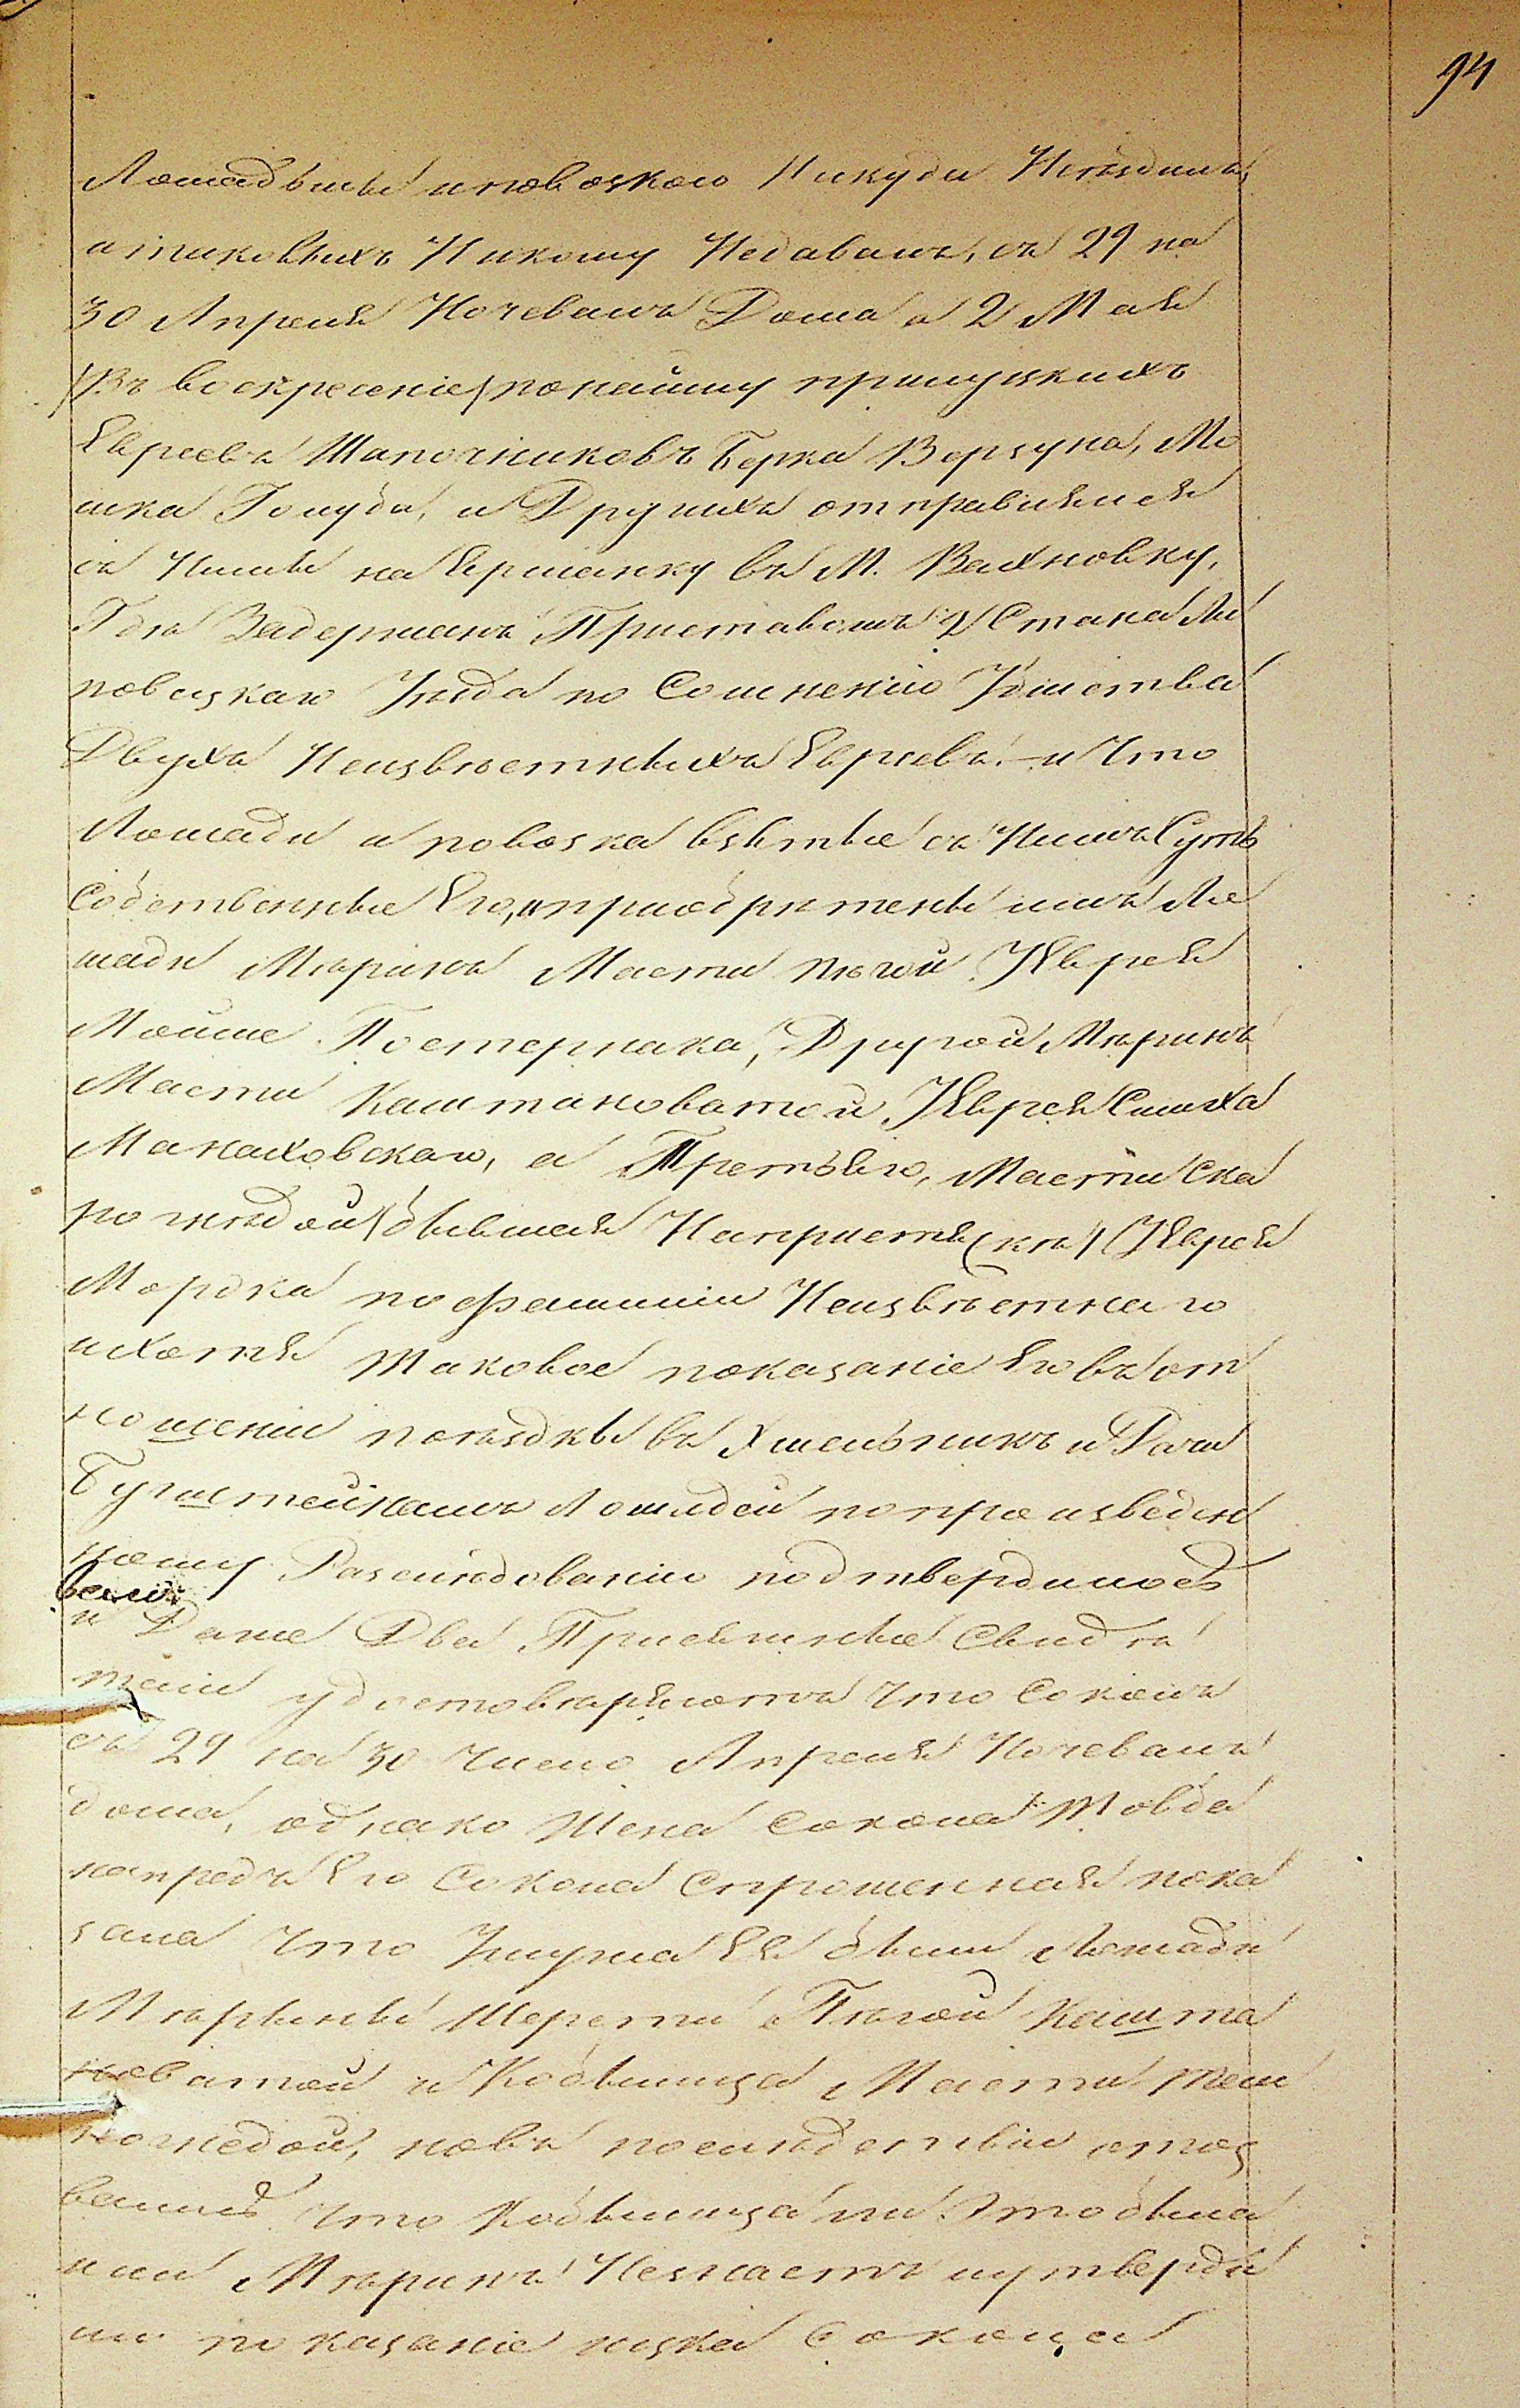 94
Лошадьми и повозкою Никуди Неѣздилъ,
и таковыхъ Никому Недавалъ, съ 29 на
30 Апреля Ночевалъ Дома а 2 Мая
/Въ воскресение/ понайму прилуцкихъ
Евреевъ Шапочниковъ Берка Верзуна, Мо
шка Голуба, и Другихъ отправился
съ Ними на Ярманку въ М. Вахновку,
Где Задержанъ Приставомъ 2 Стана Ли
повецкаго Уезда по Сомнению Убиства
Двухъ Неизвѣстныхъ Евреевъ. – и Что
Лошади и повозка взятые съ Нимъ Суть
Собственные Его, и приобретены имъ Ло
шади Мѣринъ Масти пѣгой У Еврея
Мойше Постернака, Другой Мѣринъ
Масти Каштановатой, У Еврея Симха
Манаховскаго, а Третьяго, Масти Ска
рогнедой /бывшая Напристя(жкѣ)/ У Еврея
Мордка пофамилии Неизвѣстнаго
ихотя Таковое показание Его въ от
ношении поѣздки въ Хмельникъ и Дачи
Бугштейнамъ Лошадей попроизведен
ному Разследованию подтвердилось
вели:
и Даже Два Присяжные Свидѣ
тели удостовѣряютъ что Соколъ
съ 29 на 30 число Апреля Ночевалъ
дома, однако Жена Сокола Товба
напредъ Его Сокола Спрошенная пока
зала Что Умужа Ея были Лошади
Мѣрины Шерсти Пѣгой Кашта
новатой и Кобылица Масти тем
ногнедой, новъ последствии отоз
валась что Кобылица ли Это была
или Мѣринъ Незнаетъ иутверди
ло показание мужа Сокола